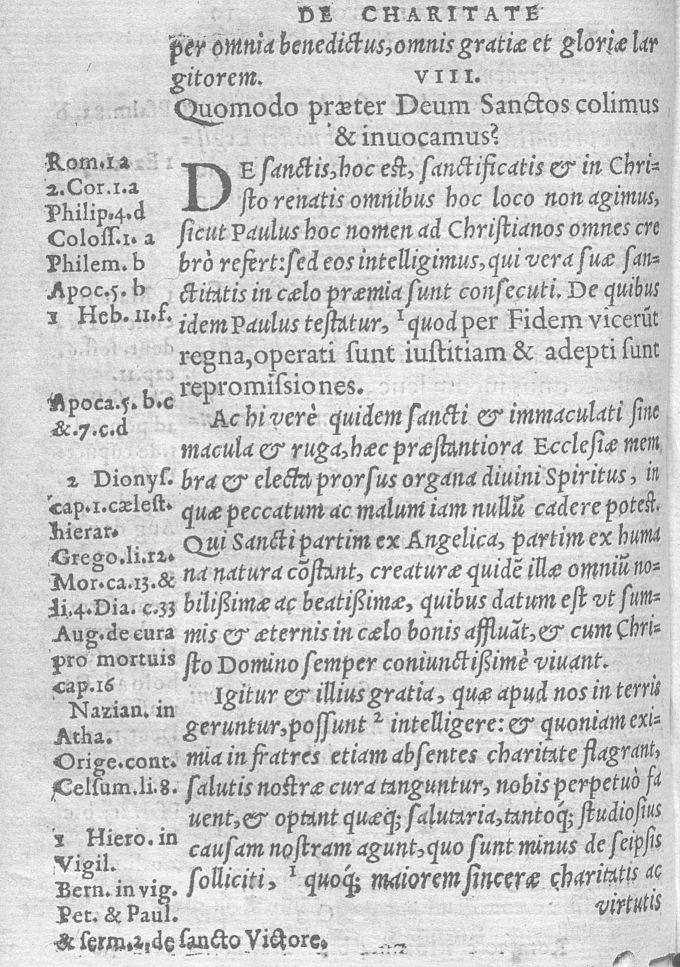 DE CHARITATE
per omnia benedictus, omnis gratiæ et gloriæ lar
gitorem. VIII.
Quomodo præter Deum Sanctos colimus
& inuocamus?
DE ſanctis, hoc eſt, ſanctificatis & in Chri-
ſto renatis omnibus hoc loco non agimus,
ſicut Paulus hoc nomen ad Chriſtianos omnes cre
brò refert: ſed eos intelligimus, qui vera ſuæ ſan-
ctitatis in cælo præmia ſunt conſecuti. De quibus
idem Paulus teſtatur, ¹ quod per Fidem vicerũt
regna, operati ſunt iuſtitiam & adepti ſunt
repromiſsiones.
Ac hi verè quidem ſancti & immaculati ſine
macula & ruga, hæc præſtantiora Eccleſiæ mem
bra & electa prorſus organa diuini Spiritus, in
quæ peccatum ac malum iam nullũ cadere poteſt.
Qui Sancti partim ex Angelica, partim ex huma
na natura cõſtant, creaturæ quidẽ illæ omniũ no-
biliſsimæ ac beatiſsimæ, quibus datum eſt vt ſum-
mis & æternis in cælo bonis affluãt, & cum Chri-
ſto Domino ſemper coniunctiſsimè viuant.
Igitur & illius gratia, quæ apud nos in terris
geruntur, poſſunt ² intelligere: & quoniam exi-
mia in fratres etiam abſentes charitate flagrant,
ſalutis noſtræ cura tanguntur, nobis perpetuò fa
uent, & optant quæq; ſalutaria, tantoq́; ſtudioſius
cauſam noſtram agunt, quo ſunt minus de ſeipſis
ſolliciti, ¹ quoq́; maiorem ſinceræ charitatis ac
virtutis
Rom.1a
2.Cor.1.a
Philip.4.d
Coloſſ.1. a
Philem. b
Apoc.5. b
1 Heb. 11.f.
Apoca.5. b.c
&.7.c.d
2 Dionyſ.
cap.1.cæleſt.
hierar.
Grego.li.12.
Mor.ca.13.&
li.4.Dia. c.33
Aug.de cura
pro mortuis
cap.16
Nazian. in
Atha.
Orige.cont.
Celſum.li.8.
1 Hiero. in
Vigil.
Bern. in vig.
Pet. & Paul.
& ſerm.2, de ſancto Victore.